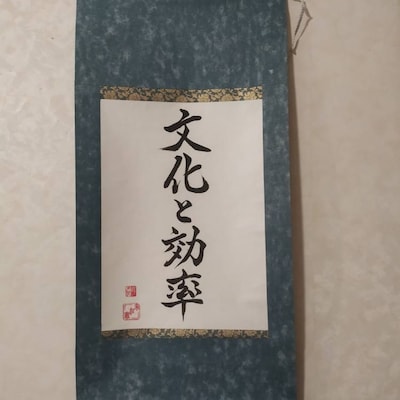 文化と効率